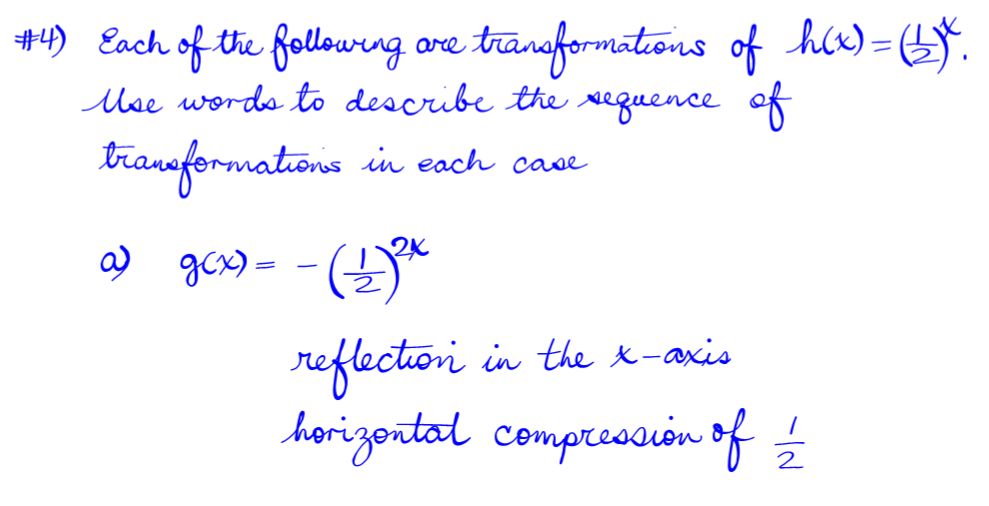 #4) Each of the following are transformations of h(x) = (1/2)^x.
Use words to describe the sequence of
transformations in each case
a) g(x) = - (1/2)^2x
reflection in the x-axis
horizontal compression of 1/2